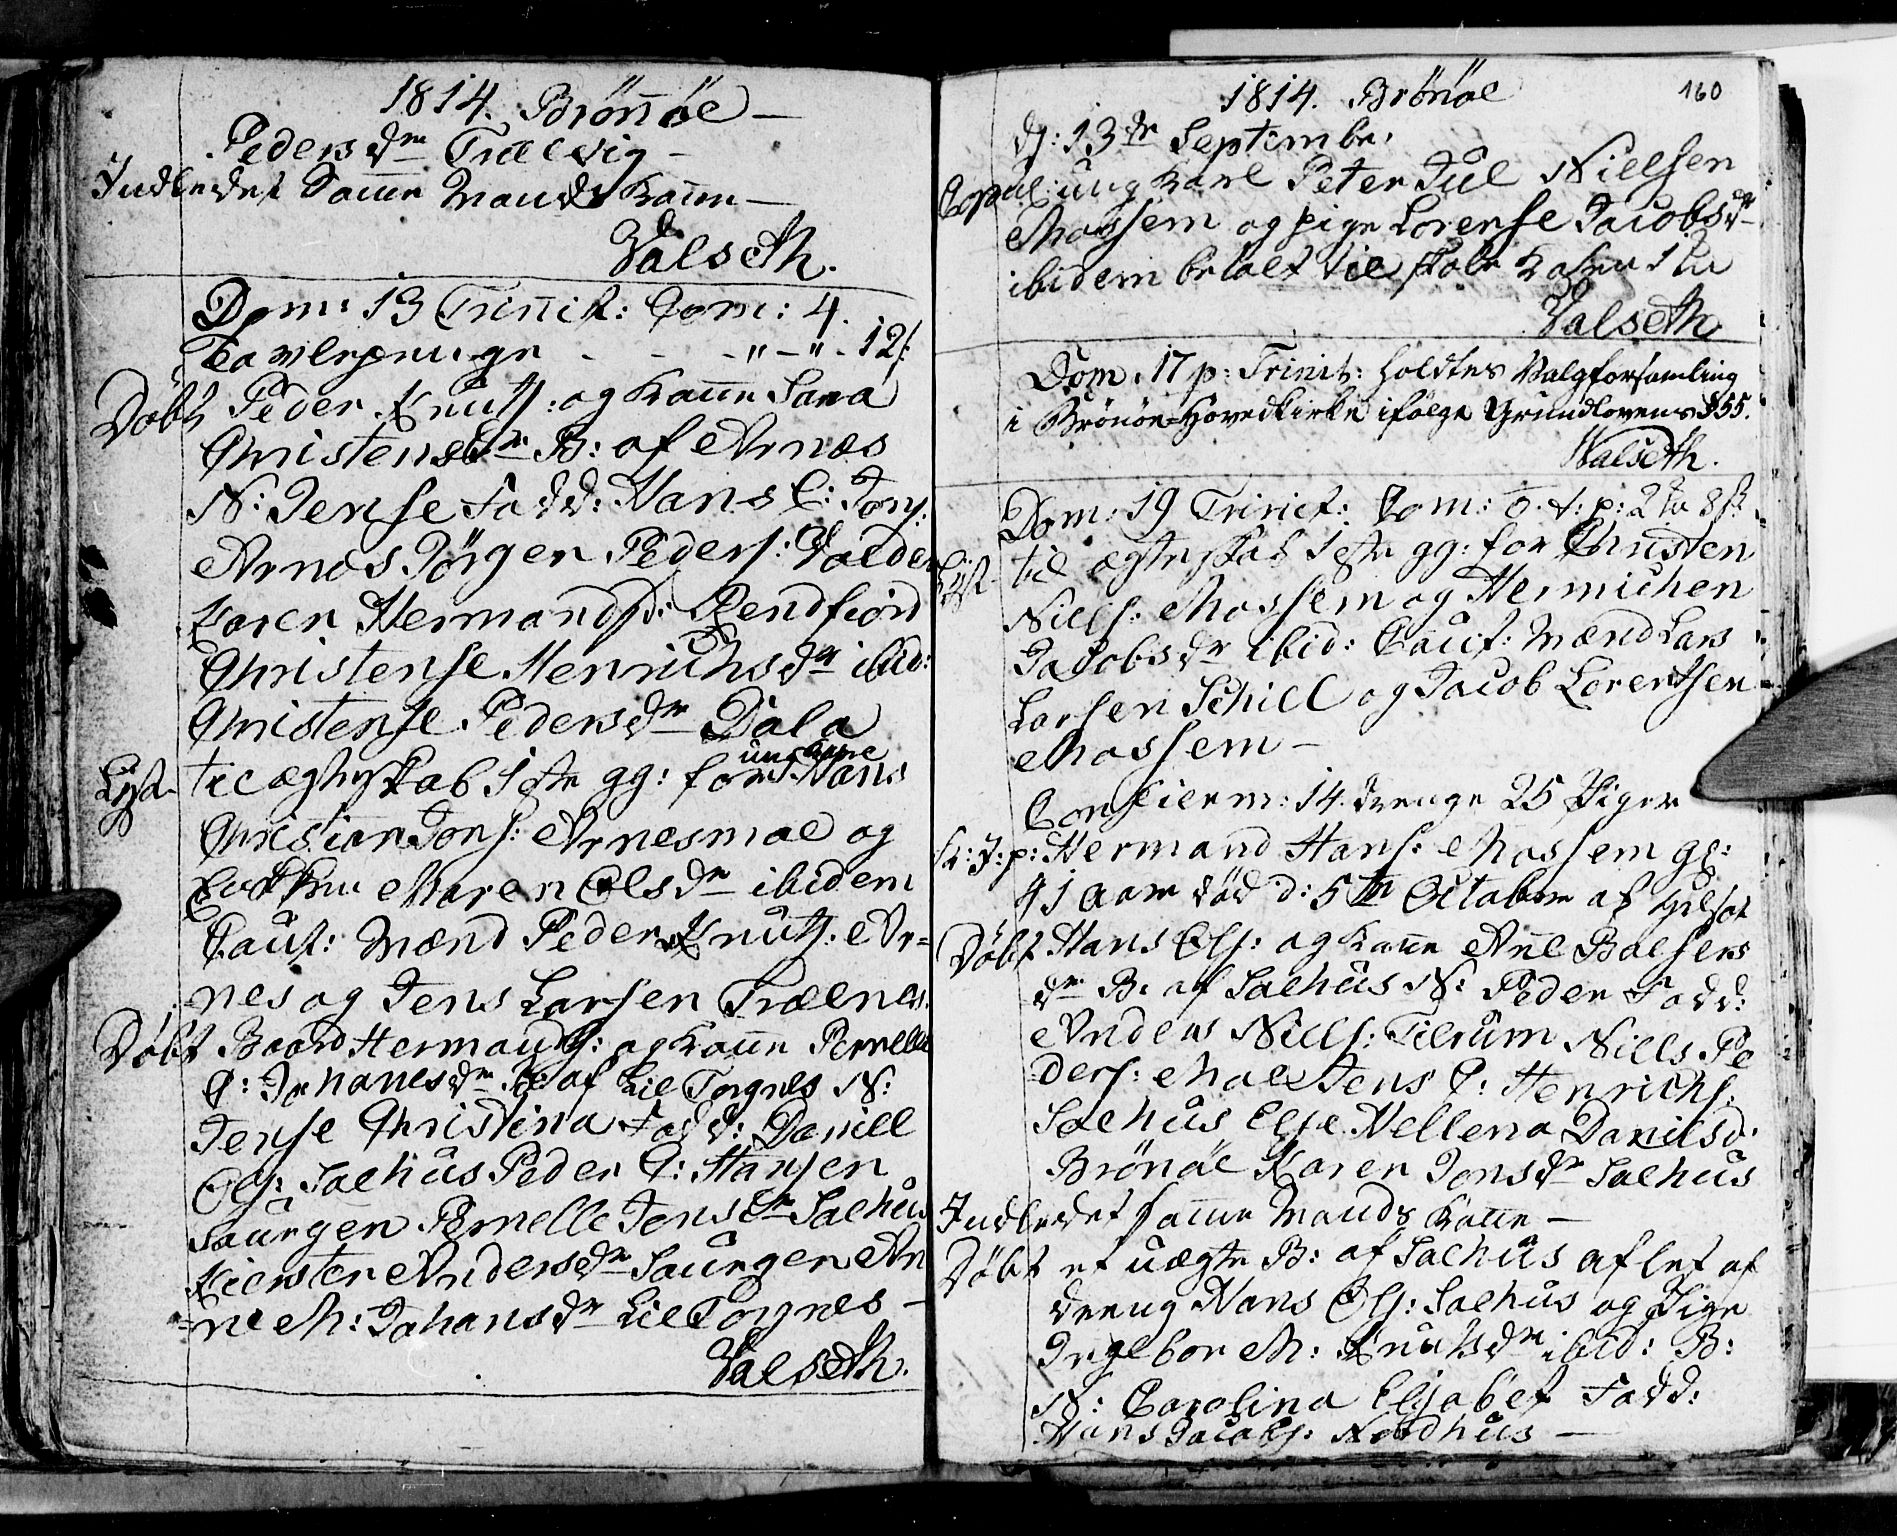 1814. Brönöe
Pedersdr Trælvig
Indledet Samme Mands Kone
Valseth.
Dom: 13 Trinit: Com: 4.
Tavlepenge - - -"-"- 12 ß:
Döbt Peder Knuts: og Kone Sara
Christensdr B: af Arnæs
N: Jense Fadd: Hans C: Jons:
Arnæs Jörgen Peders: Valder
Karen Hermandsd: Rendfiord
Christense Henrichsdr ibid:
Christense Pedersdr Dala
Lyst til ægteskab 1ste gg: for ungkarl Hans
Christian Jons: Arnesmoe og
Maren Olsdr ibidem
Caut: Mænd Peder Knuts: Ar=
nes og Jens Larsen Trælnes.
Döbt Baard Hermands: og Kone Pernelle
C: Johanesdr B: af Lil Torgnes N:
Jense Christina Fadd: Daniel
Ols: Salhus Peder C: Hansen
Saurgen Pernelle Jensdr Salhus
Kiersten Andersdr Saurgen An
=ne M: Johansdr Lil Torgnes -
Valseth.
1814. Brönöe
160
d: 13de September
Copul: ung Karl Peter Jul Nielsen
Mossem og pige Lorense Jacobsdr
ibidem betalt til skole Kassen 1
Valseth
Dom. 17 p: Trinit: holdtes Valgforsamling
i Brönöe=Hovedkirke ifølge Grundlovens §55.
Valseth.
Dom: 19 Trinit: Com: 0. t: p: 2 8 ß
Lyst til ægteskab 1ste gg: for Christen
Niels: Mossem og Hermichen
Jacobsdr ibid: Caut: Mænd Lars
Larsen Schill og Jacob Lorentsen
Mossem -
Confierm: 14 drenge 25 Piger
J: p: Hermand Hans: Mossem gl:
41 aar död d: 5te Octobem af
Döbt Hans Ols: og Kone Ane Balsers
dr B: af Salhus N: Peder Fadd:
Anders Niels: Tilrum Niels Pe
ders: Moe Jens C: Henrichs:
Salhus Else Hellena Danilsd:
Brönöe Karen Jonsdr Salhus
Indledet samme Mands Kone -
Döbt et uægte B: af Salhus aflet af
dreng Hans Ols: Salhus og Pige
Ingebor M: Knutsdr ibid: B:
N: Carolina Elsabet Fadd:
Hans Jacobs: Nordhus -